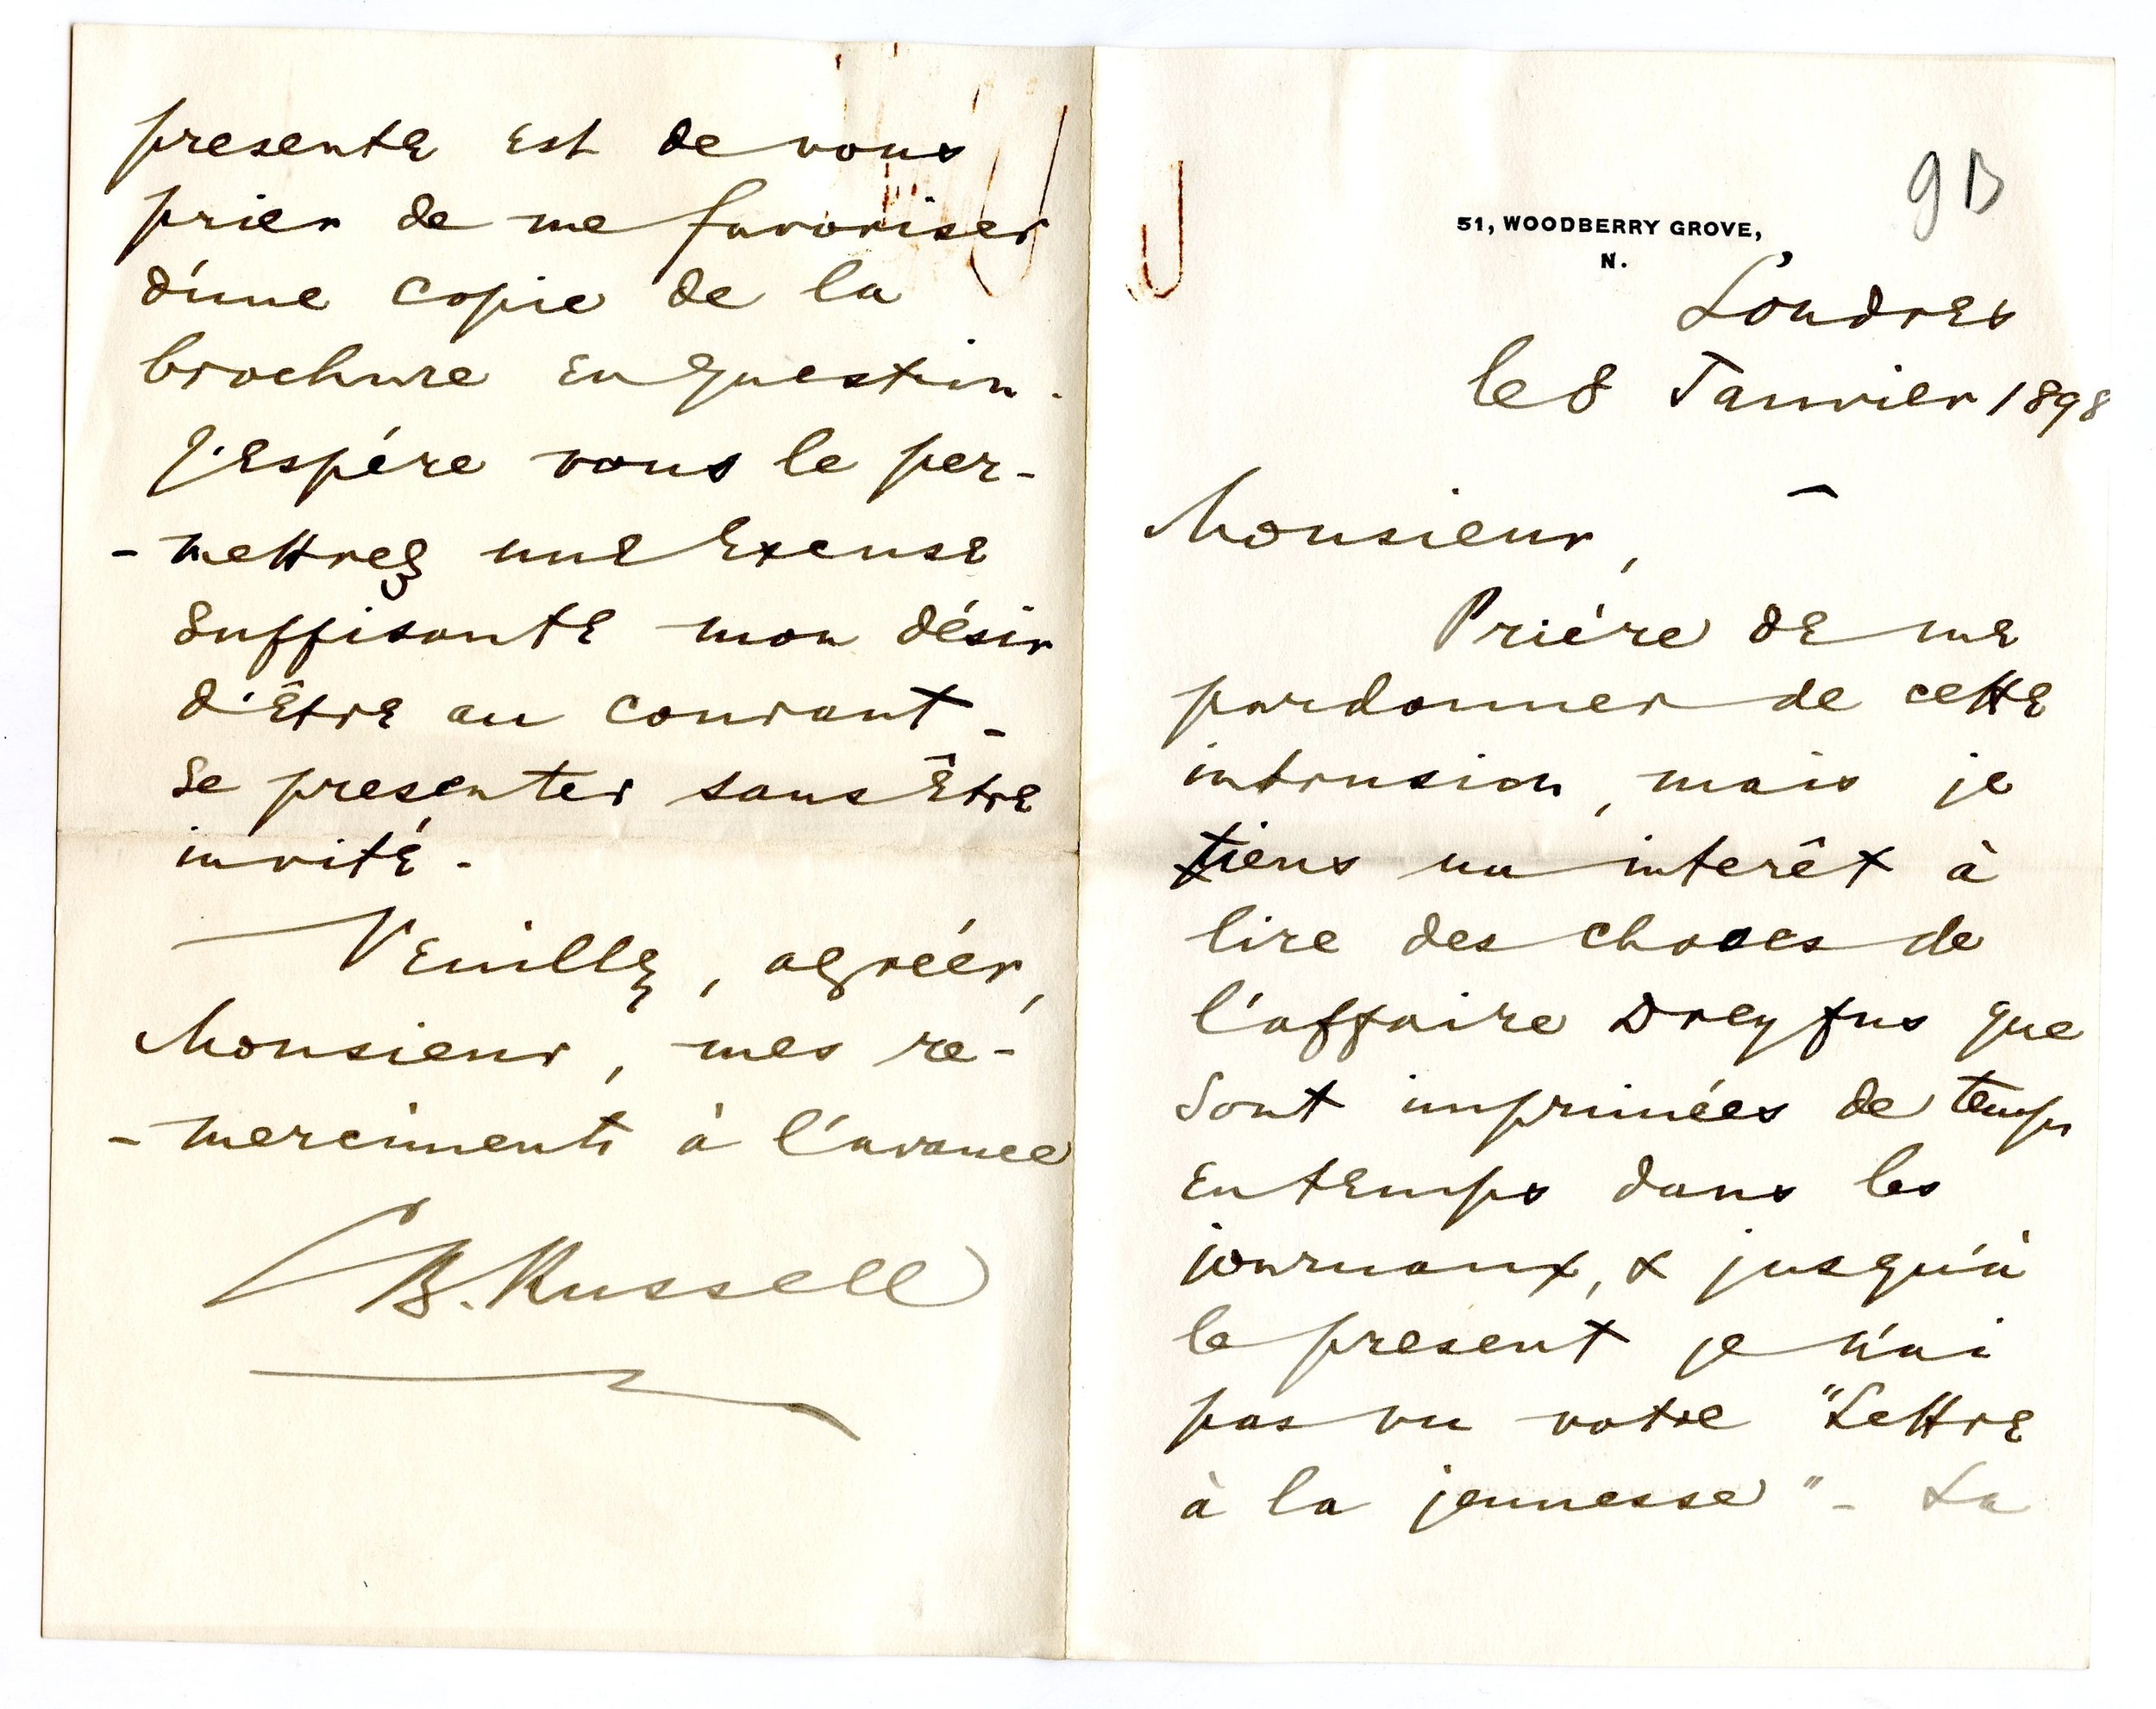 9B
51, WOODBERRY GROVE,
N.
Londres
le 8 Janvier 1898
Monsieur,
Priére de me
pardonner de cette
intrusion, mais je
tiens un interêt à
lire des choses de
l'affaire Dreyfus que
sont imprimées de temps
en temps dans les
journaux, & jusqu'à
le present je n'ai
pas vu votre "Lettre
à la jeunesse" - La
presente est de vous
prier de me favoriser
d'une copie de la
brochure en question.
J'espére vous le per-
-mettrez une excuse
suffisante mon désir
d'être au courant -
se presenter sans être
invité -
Veuillez, agréér,
Monsieur, mes re-
-merciments à l'avance
CB. Russell